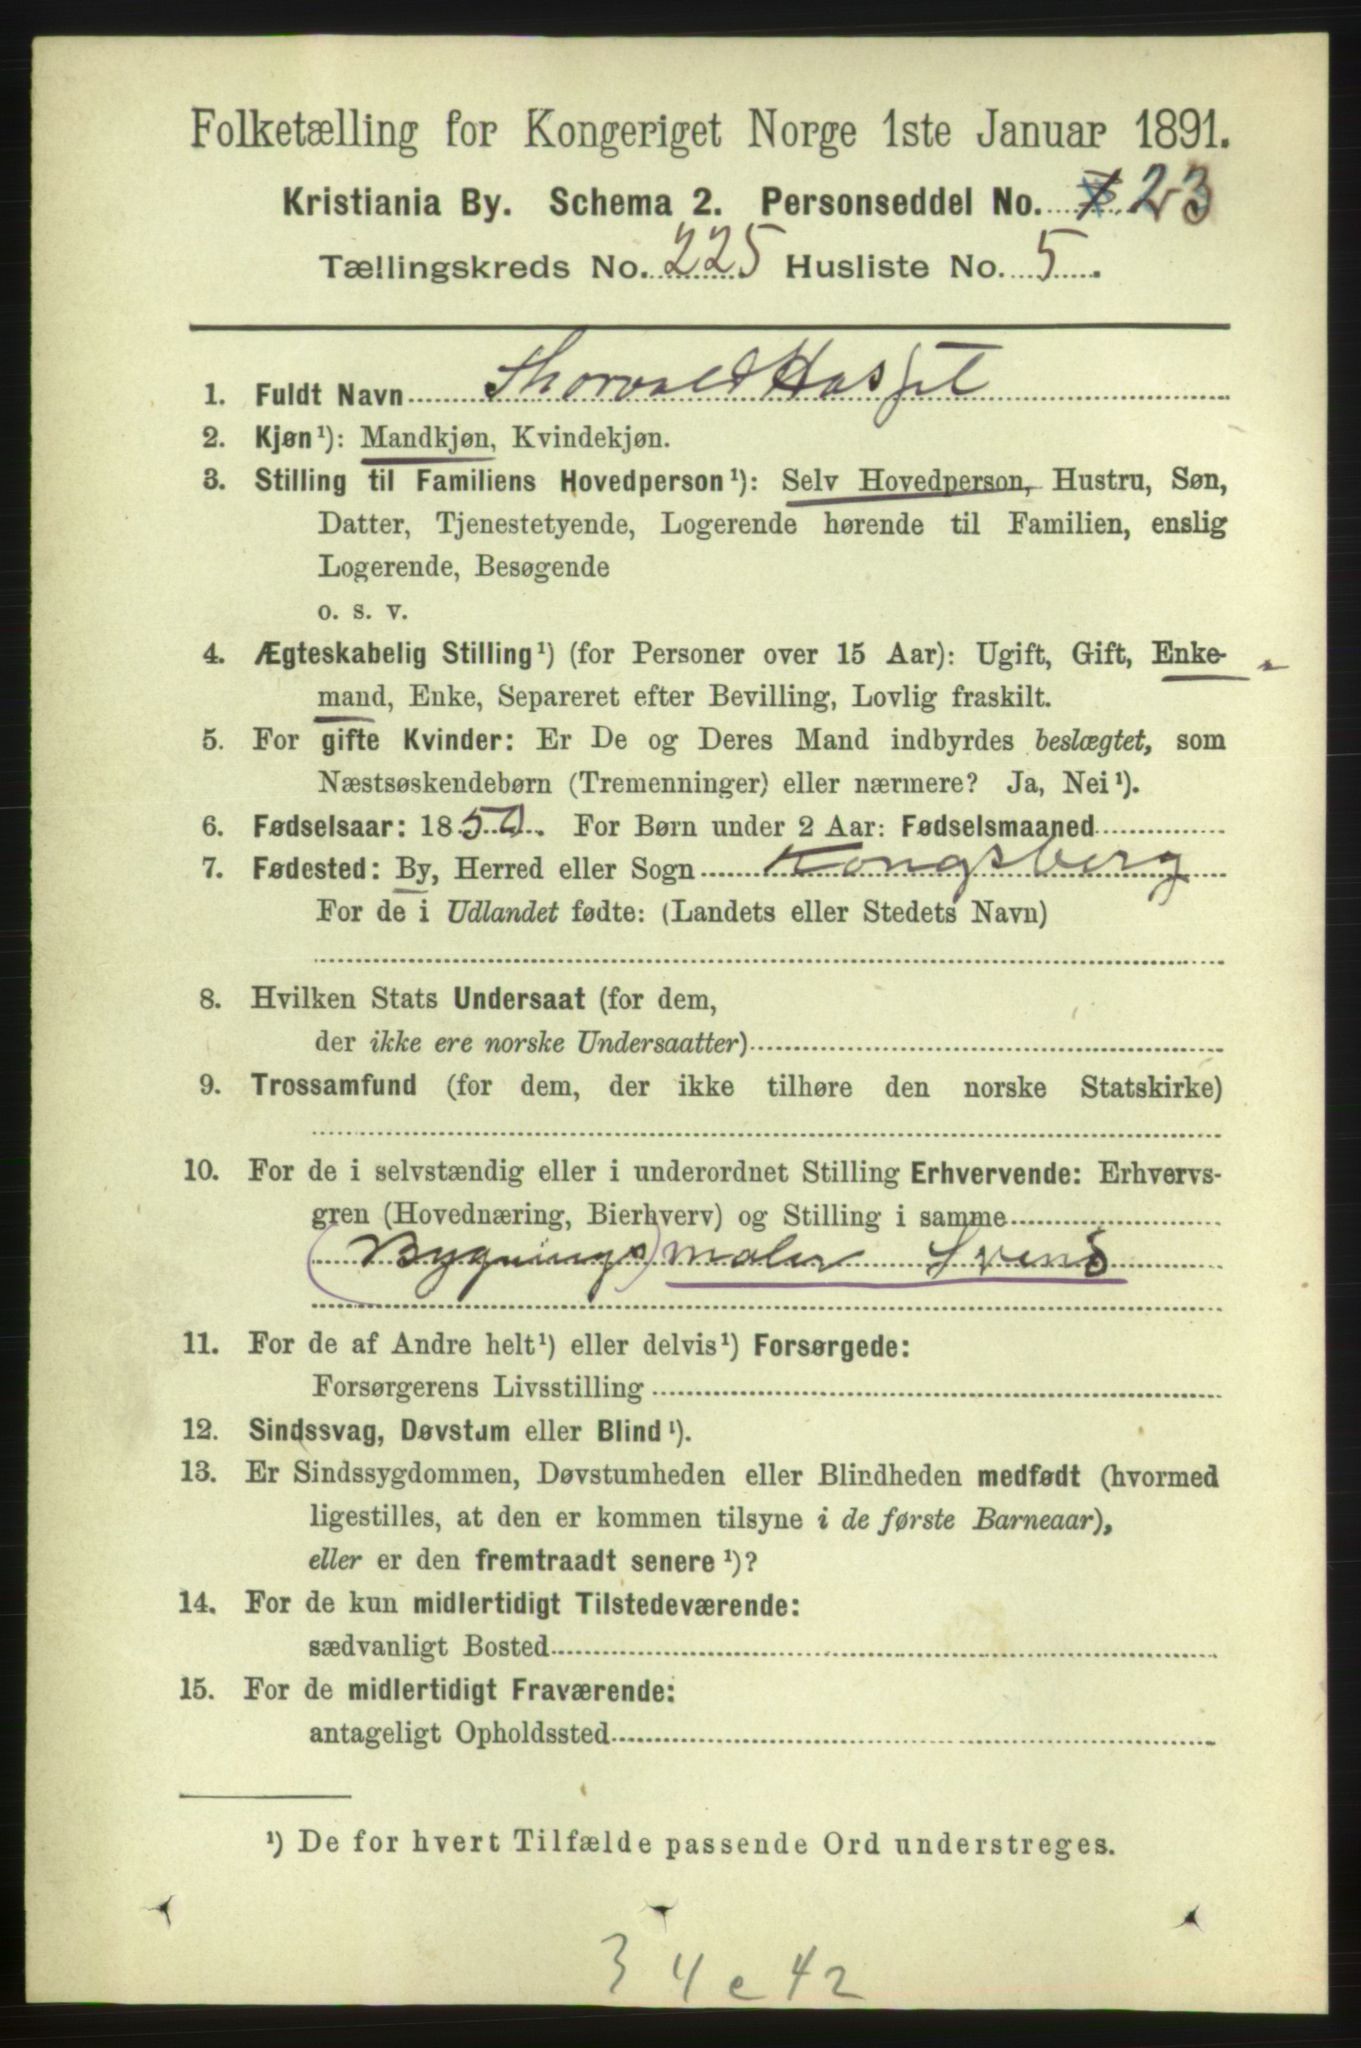 Folketælling for Kongeriget Norge 1ste Januar 1891.
Kristiania By. Schema 2. Personseddel No. 7 23
Tællingskreds No. 225 Husliste No. 5.
1. Fuldt Navn Thorvald
2. Kjøn¹): Mandkjøn, Kvindekjøn.
3. Stilling til Familiens Hovedperson¹): Selv Hovedperson, Hustru, Søn,
Datter, Tjenestetyende, Logerende hørende til Familien, enslig
Logerende, Besøgende
o. s. v.
4. Ægteskabelig Stilling¹) (for Personer over 15 Aar): Ugift, Gift, Enke-
mand, Enke, Separeret efter Bevilling, Lovlig fraskilt.
5. For gifte Kvinder: Er De og Deres Mand indbyrdes beslægtet, som
Næstsøskendebørn (Tremenninger) eller nærmere? Ja, Nei¹).
6. Fødselsaar: 1850. For Børn under 2 Aar: Fødselsmaaned
7. Fødested: By, Herred eller Sogn Kongsberg
For de i Udlandet fødte: (Landets eller Stedets Navn)
8. Hvilken Stats Undersaat (for dem,
der ikke ere norske Undersaatter)
9. Trossamfund (for dem, der ikke tilhøre den norske Statskirke)
10. For de i selvstændig eller i underordnet Stilling Erhvervende: Erhvervs-
gren (Hovednæring, Bierhverv) og Stilling i samme
(Bygnings) maler Svend
11. For de af Andre helt¹) eller delvis¹) Forsørgede:
Forsørgerens Livsstilling
12. Sindssvag, Døvstum eller Blind¹).
13. Er Sindssygdommen, Døvstumheden eller Blindheden medfødt (hvormed
ligestilles, at den er kommen tilsyne i de første Barneaar),
eller er den fremtraadt senere¹)?
14. For de kun midlertidigt Tilstedeværende:
sædvanligt Bosted
15. For de midlertidigt Fraværende:
antageligt Opholdssted
¹) De for hvert Tilfælde passende Ord understreges.
34 e 42